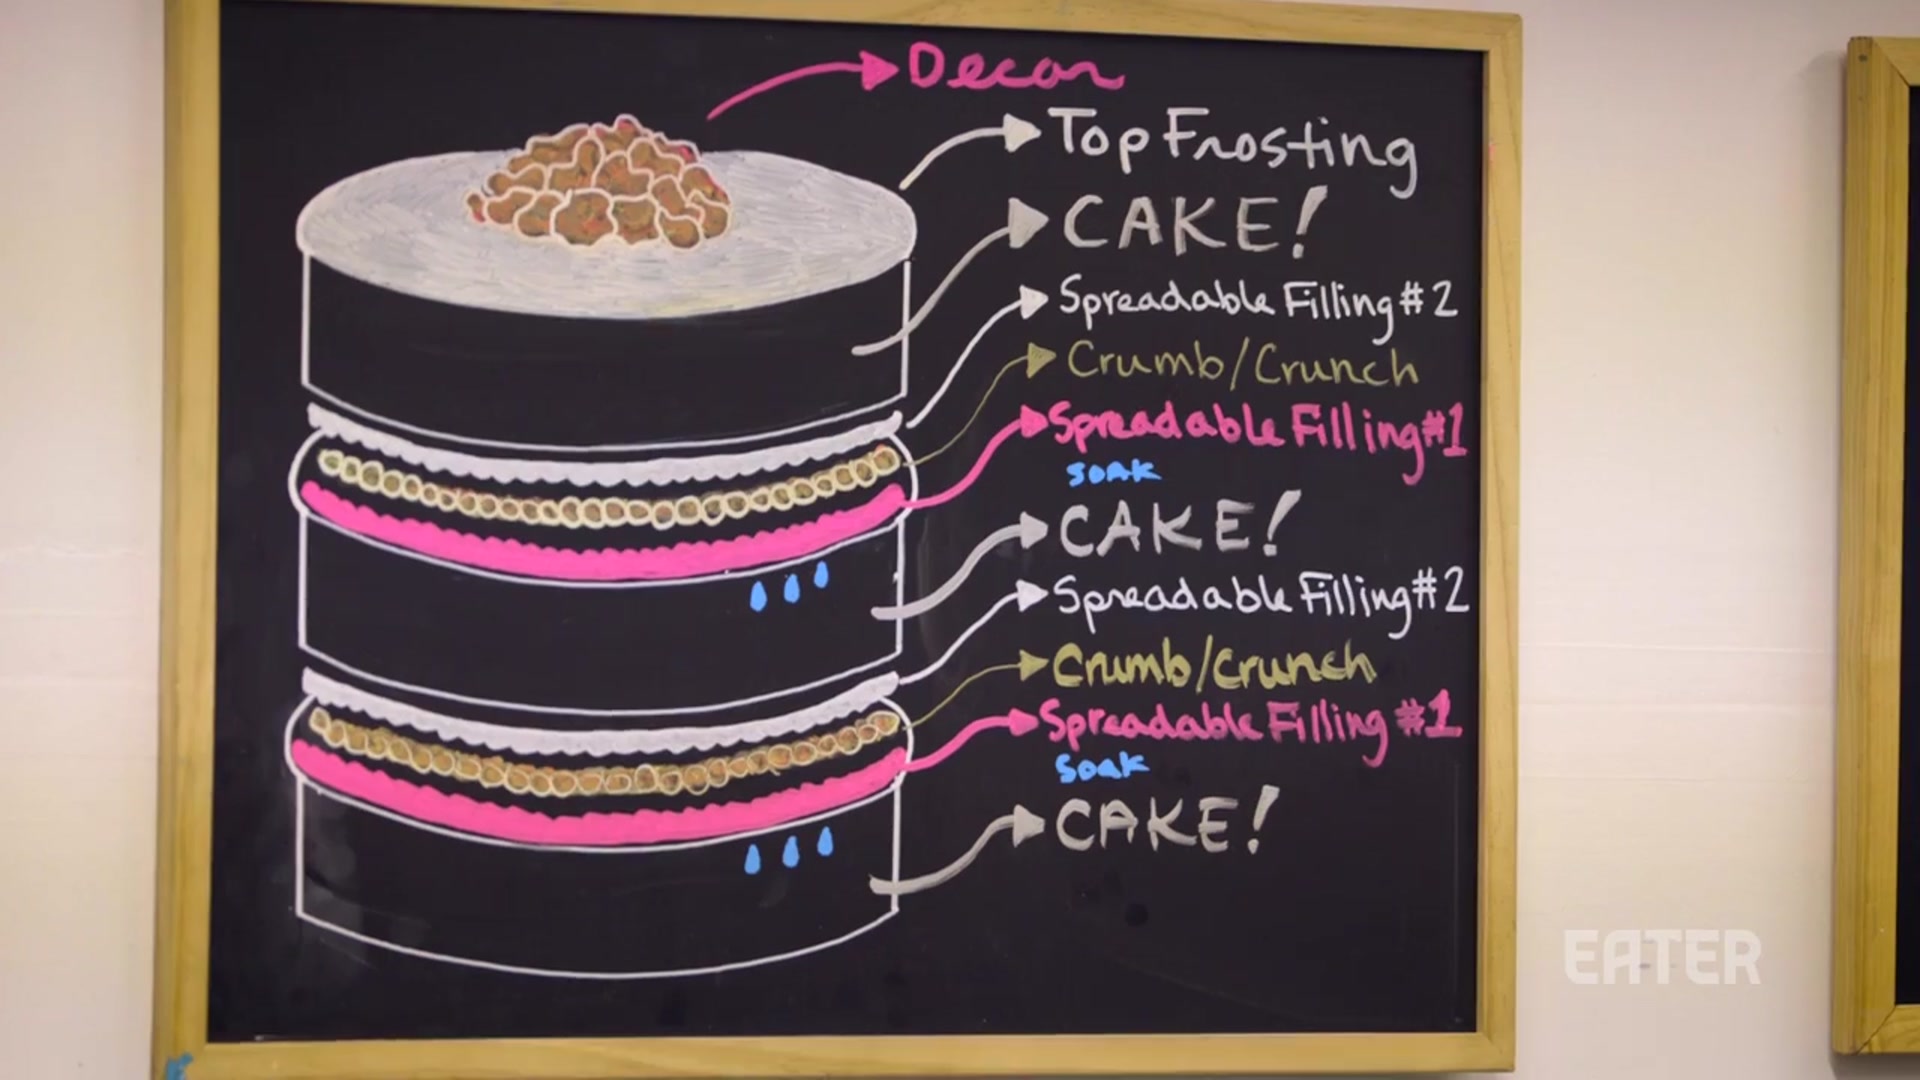 Decor
Top Frosting
CAKE!
Spreadable Filling #2
Crumb/Crunch
Spreadable Filling #1
soak
CAKE!
Spreadable Filling #2
Crumb/Crunch
Spreadable Filling #1
Soak
CAKE!
EATER